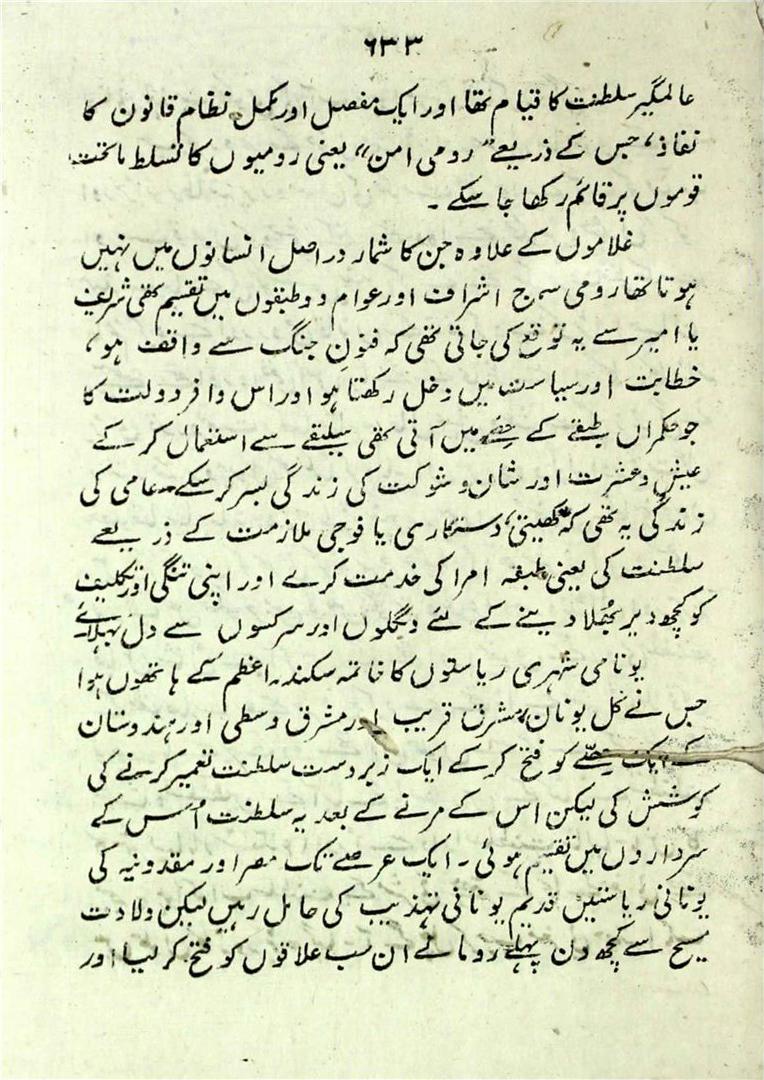 ۶۳۳
عالمگیر سلطنت کا قیام تھا اور ایک مفصل اور مکمل نظام قانون کا
نفاذ، جس کے ذریعے "رومی امن" یعنی رومیوں کا تسلط ماتحت
قوموں پر قائم رکھا جا سکے ۔
غلاموں کے علاوہ جن کا شمار دراصل انسانوں میں نہیں
ہوتا تھا رومی سماج اشراف اور عوام دو طبقوں میں تقسیم تھی شریف
یا امیر سے یہ توقع کی جاتی تھی کہ فنونِ جنگ سے واقف ہو،
خطابت اور سیاست میں دخل رکھتا ہو اور اس وافر دولت کا
جو حکمراں طبقے کے حصّے میں آتی تھی سلیقے سے استعمال کر کے
عیش و عشرت اور شان و شوکت کی زندگی بسر کر سکے۔ عامی کی
زندگی یہ تھی کہ کھیتی، دستکاری یا فوجی ملازمت کے ذریعے
سلطنت کی یعنی طبقہ امرا کی خدمت کرے اور اپنی تنگی اور تکلیف
کو کچھ دیر بھلا دینے کے لئے دنگلوں اور سرکسوں سے دل بہلائے
یونانی شہری ریاستوں کا خاتمہ سکندر اعظم کے ہاتھوں ہوا
جس نے کل یونان، مشرق قریب اور مشرق وسطی اور ہندوستان
کے ایک حصّے کو فتح کر کے ایک زبردست سلطنت تعمیر کرنے کی
کوشش کی لیکن اس کے مرنے کے بعد یہ سلطنت اُس کے
سرداروں میں تقسیم ہوئی ۔ ایک عرصے تک مصر اور مقدونیہ کی
یونانی ریاستیں قدیم یونانی تہذیب کی حامل رہیں لیکن ولادت
مسیح سے کچھ دن پہلے روما نے ان سب علاقوں کو فتح کر لیا اور